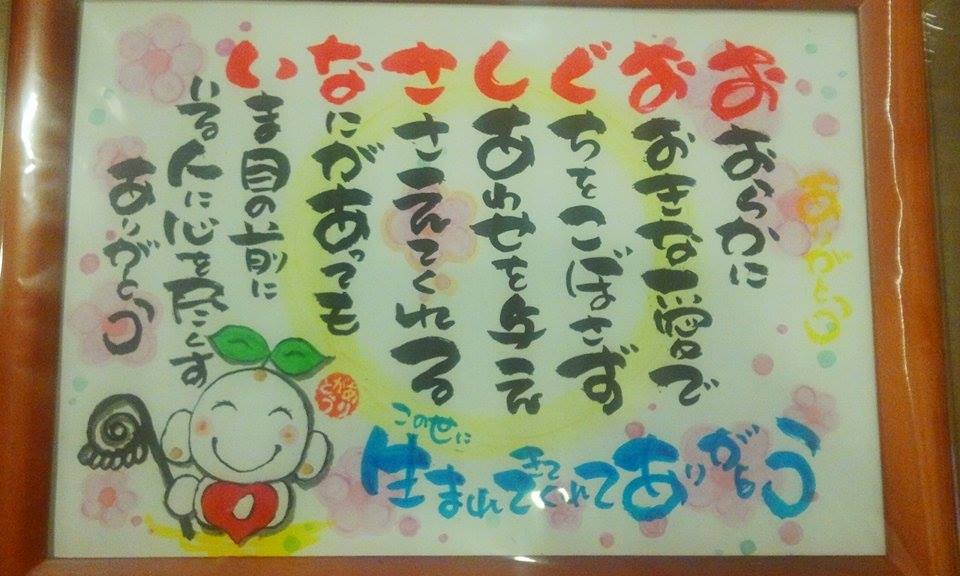 ありがとう
おおらかに
おおきな愛で
ぐちをこぼさず
しあわせを与え
ささえてくれる
なにがあっても
いま目の前に
いる人に心を尽くす
ありがとう
ありがとう
この世に
生まれてきてくれてありがとう